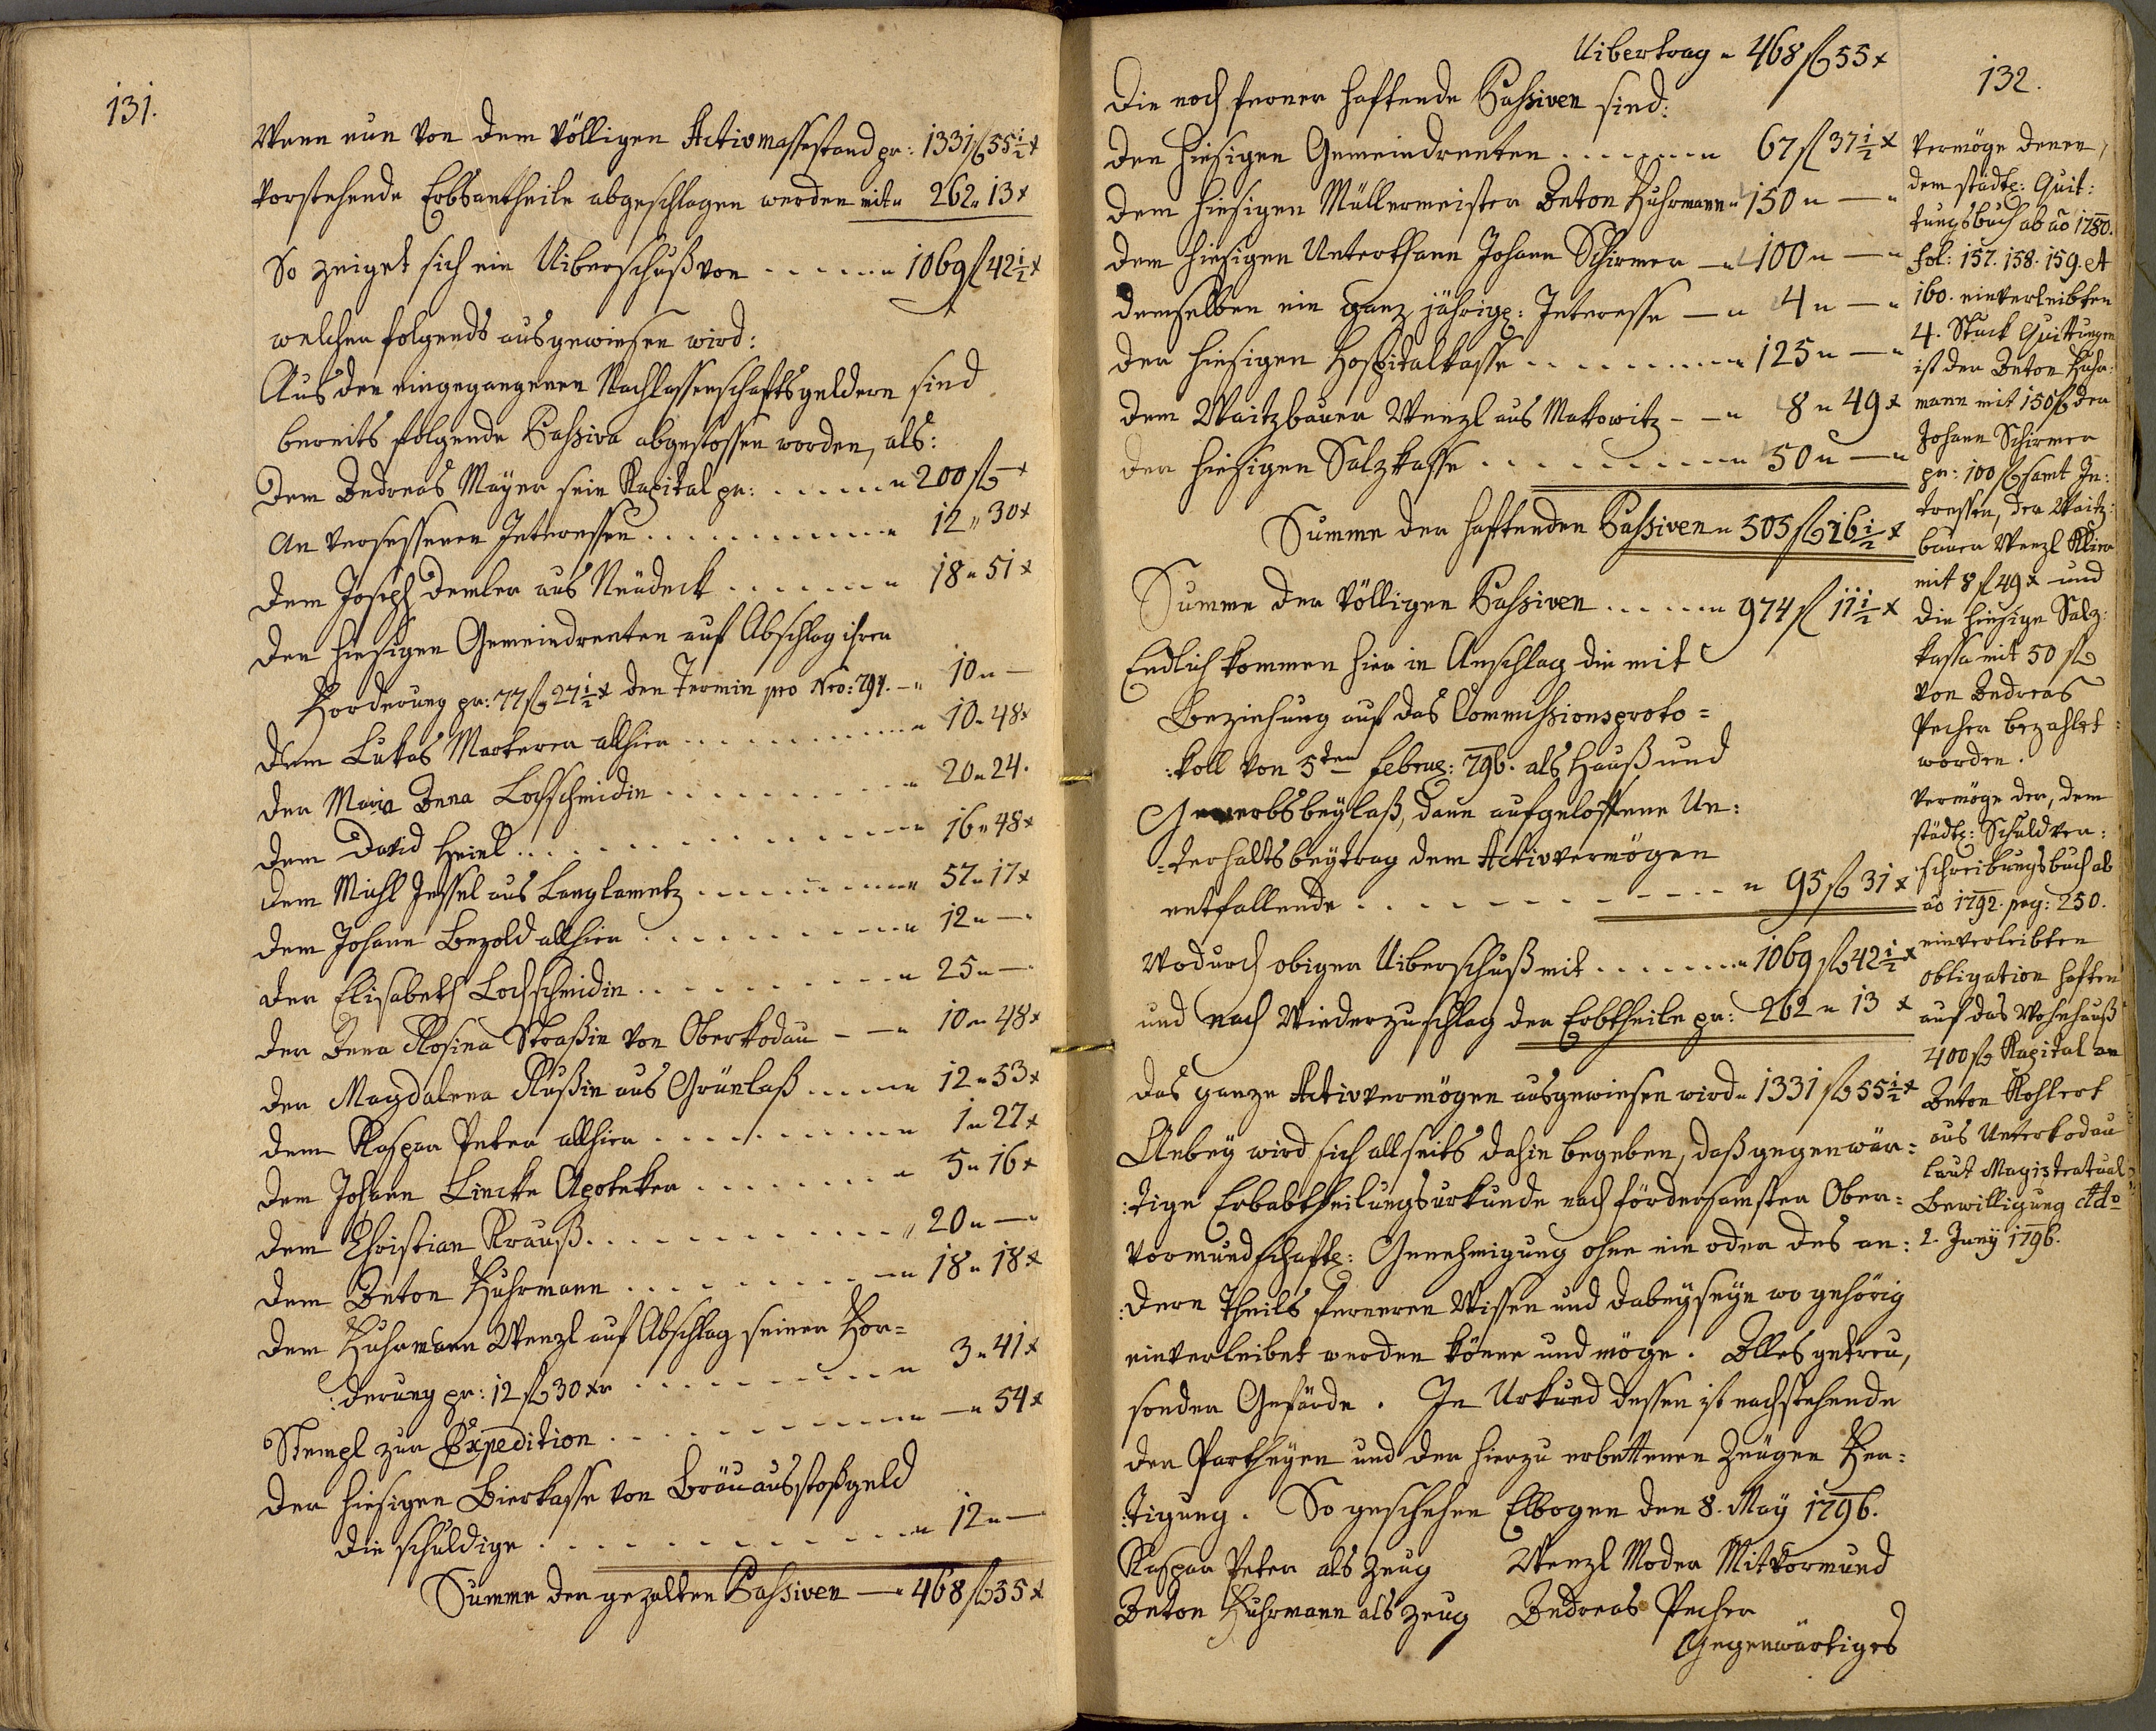 131.
Wenn nun von dem völligen Activmassestand pr: 1331 fl 55½ x
vorstehende Erbsantheile abgeschlagen werden mit „ 262 „ 13 x
So zeiget sich ein Uiberschuß von - - - - - - „ 1069 fl 42½ x
welcher folgends ausgewiesen wird:
Aus den eingegangenen Nachlassenschaftsgeldern sind
bereits folgende Passiva abgestossen worden, als:
Dem Andreas Mayer sein Kapital pr: . . . . . . „ 200 fl — x
An versessenen Interessen . . . . . . . . . . . „ 12 „ 30 x
Dem Joseph Demler aus Neudeck . . . . . . . „ 18 „ 51 x
Den hiesigen Gemeindrenten auf Abschlag ihrer
Forderung pr: 77 fl 27½ x den Termin pro Nro: 791. — „ 10 „ —
Dem Lukas Markerer allhier . . . . . . . . . . „ 10 „ 48 x
Der Maria Anna Lochschmidin . . . . . . . . . . „ 20 „ 24.
Dem David Heinl . . . . . . . . . . . . . . . „ 16 „ 48 x
Dem Michl Jessel aus Langlametz . . . . . . . . „ 57 „ 17 x
Dem Johann Bezold allhier . . . . . . . . . . . „ 12 „ —
der Elisabeth Lochschmidin . . . . . . . . . . „ 25 „ —
der Anna Rosina Straßin von Oberkodau - — „ 10 „ 48 x
der Magdalena Rußin aus Grünlaß . . . . . . „ 12 „ 53 x
dem Kaspar Peter allhier . . . . . . . . . . . „ 1 „ 27 x
dem Johann Lincke Apoteker . . . . . . . . „ 5 „ 16 x
dem Christian Krauß . . . . . . . . . . . . . „ 20 „ —
dem Anton Fuhrmann . . . . . . . . . . . „ 18 „ 18 x
Dem Fuhrmann Wenzl auf Abschlag seiner For=
:derung pr: 12 fl 30 xr . . . . . . . . . . . „ 3 „ 41 x
Stempl zur Expedition . . . . . . . . . . . . . — „ 54 x
der hiesigen Bierkasse von Bräuausstoßgeld
die schuldige . . . . . . . . . . . . . . . „ 12 „ —
Summe der gezalten Passiven — „ 468 fl 55 x
132.
Uibertrag „ 468 fl 55 x
Die noch ferner haftende Passiven sind:
Den hiesigen Gemeindrenten . . . . . . . . „ 67 fl 37½ x
Dem hiesigen Müllermeister Anton Fuhrmann „ 150 „ — „
Dem hiesigen Unterthann Johann Schirmer — „ 100 „ — „
demselben ein ganz jährigs: Interesse — „ 4 „ — „
der hiesigen Hospitalkasse . . . . . . . . . . „ 125 „ — „
dem Waitzbauer Wenzl aus Makowitz - — „ 8 „ 49 x
der hiesigen Salzkasse . . . . . . . . . . . . „ 50 „ — „
Summe der haftenden Passiven „ 505 fl 16½ x
Summe der völligen Passiven . . . . . . „ 974 fl 11½ x
Endlich kommen hier in Anschlag die mit
Beziehung auf das Commissionsproto=
:koll von 5ten Februar: 796. als Hauß und
Gewerbsbeylaß, dann aufgeloffenen Un:
=terhaltsbeytrag dem Activvermögen
entfallende . . . . . . . . . . . . . . „ 95 fl 31 x
Wodurch obiger Uiberschuß mit . . . . . . . „ 1069 fl 42½ x
und nach Wiederzuschlag der Erbtheile pr: 262 „ 13 x
das ganze Activvermögen ausgewiesen wird „ 1331 fl 55½ x
Anbey wird sich allseits dahin begeben, daß gegenwär=
:tige Erbabtheilungsurkunde nach fördersamster Ober=
vormundschafts: Genehmigung ohne ein oder des an:
:dern Theils ferneren Wissen und dabeyseyn wo gehörig
einverleibet werden könne und möge. Alles getreu,
sonder Gefärde. In Urkund dessen ist nachstehende
der Partheyen und der hierzu erbettenen Zeugen Fer=
:tigung. So geschehen Elbogen den 8. May 1796.
Kaspar Peter als Zeug Wenzl Moder Mitvormund
Anton Fuhrmann als Zeug Andreas Pecher
Gegenwärtiges
Vermöge denen,
dem städts: Quit:
tungsbuch ab ao 1780.
fol: 157. 158. 159. et
160. einverleibten
4. Stuck Quittungen
ist der Anton Fuhr:
mann mit 150 fl der
Johann Schirmer
pr: 100 fl samt In:
tressen, der Waitz:
bauer Wenzl Klier
mit 8 fl 49 x und
die hiesige Salz:
kassa mit 50 fl
von Andreas
Pecher bezahlet
worden.
Vermöge der, dem
städts: Schuldver:
:schreibungsbuch ab
ao 1792. pag: 250.
einverleibten
obligation haften
auf das Wohnhauß
400 fl Kapital an
Anton Kohlert
aus Unterkodau
laut Magistratual
Bewilligung ddo
2. Juny 1796.